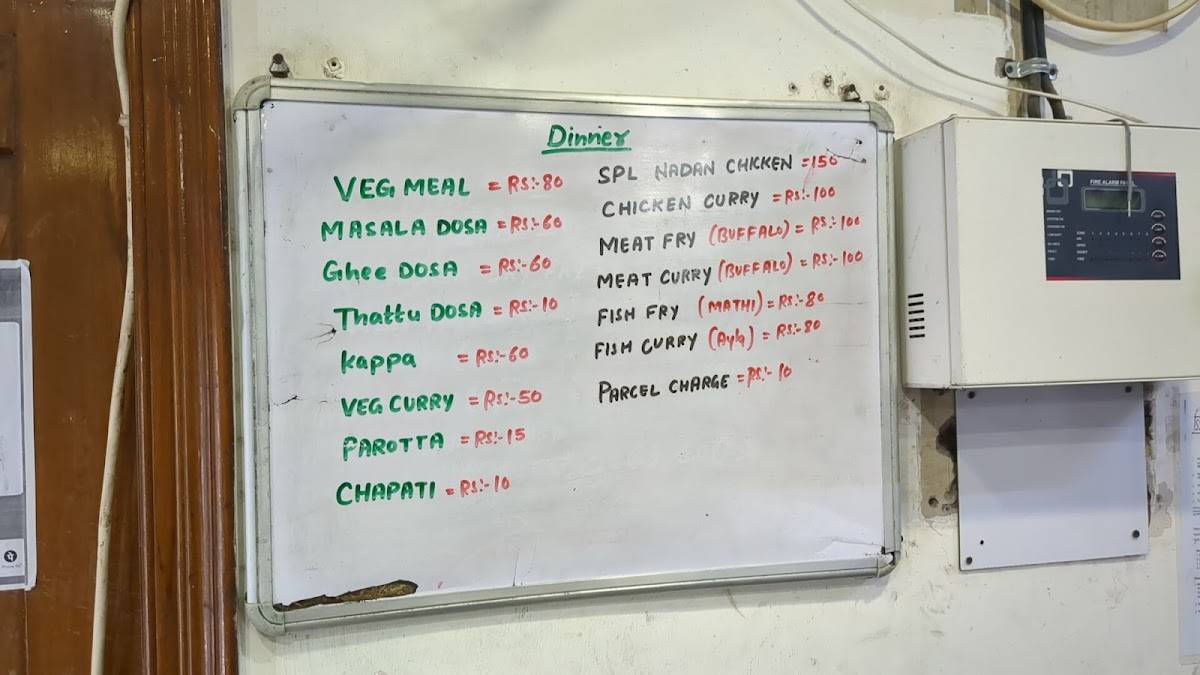 Dinner
VEG MEAL = RS:-80
MASALA DOSA = RS:-60
Ghee DOSA = RS:-60
Thattu DOSA = RS:-10
kappa = RS:-60
VEG CURRY = RS:-50
PAROTTA = RS:-15
CHAPATI = RS:-10
SPL NADAN CHICKEN = 150
CHICKEN CURRY = RS:-100
MEAT FRY (BUFFALO) = RS:-100
MEAT CURRY (BUFFALO) = RS:-100
FISH FRY (MATHI) = RS:-80
FISH CURRY (Ayla) = RS:-80
PARCEL CHARGE = RS:- 10
FIRE ALARM